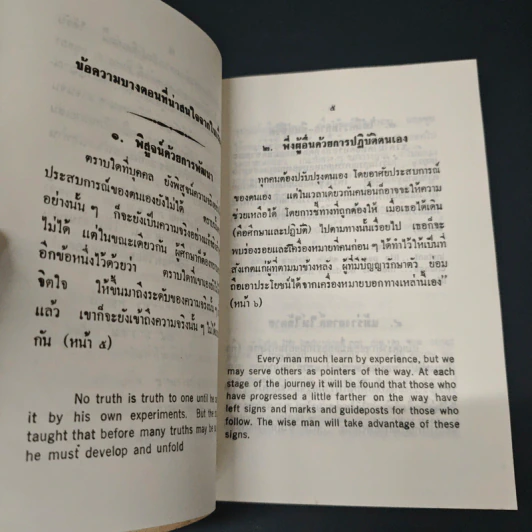 ข้อความบางตอนที่น่าสนใจจาก
๑. พิสูจน์ด้วยการพัฒนา
ตราบใดที่บุคคล ยังพิสูจน์ความจริง
ประสบการณ์ของตนเองยังไม่ได้
อย่างนั้น ๆ ก็จะยังเป็นความจริงอย่าง
ไม่ได้ แต่ในขณะเดียวกัน ผู้ศึกษาก็ต้อง
อีกข้อหนึ่งไว้ด้วยว่า ตราบใดที่เขา
จิตใจ ให้ขึ้นมาถึงระดับของความจริงนั้น ๆ
แล้ว เขาก็จะยังเข้าถึงความจริงนั้น ๆ ไม่ได้
กัน (หน้า ๕)
No truth is truth to one until he
it by his own experiments. But the
taught that before many truths may be
he must develop and unfold
๕
๒. พึ่งผู้อื่นด้วยการปฏิบัติตนเอง
ทุกคนต้องปรับปรุงตนเอง โดยอาศัยประสบการณ์
ของตนเอง แต่ในเวลาเดียวกันคนอื่นก็อาจจะให้ความ
ช่วยเหลือได้ โดยการชี้ทางที่ถูกต้องให้ เมื่อเธอได้เดิน
(คือศึกษาและปฏิบัติ) ไปตามทางนั้นเรื่อยไป เธอก็จะ
พบร่องรอยและเครื่องหมายที่คนก่อน ๆ ได้ทำไว้ให้เป็นที่
สังเกตแก่ผู้ที่ตามมาข้างหลัง ผู้ที่มีปัญญารักษาตัว ย่อม
ถือเอาประโยชน์ได้จากเครื่องหมายบอกทางเหล่านี้เอง"
(หน้า ๖)
Every man much learn by experience, but we
may serve others as pointers of the way. At each
stage of the journey it will be found that those who
have progressed a little farther on the way have
left signs and marks and guideposts for those who
follow. The wise man will take advantage of these
signs.